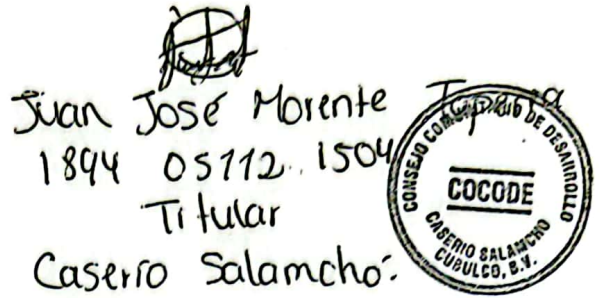 Juan José Morente
1894 05112 1504
Titular
Caserío Salamcho.
CONSEJO COMUNITARIO DE DESARROLLO
COCODE
CASERIO SALAMCHO
CUBULCO, B.V.